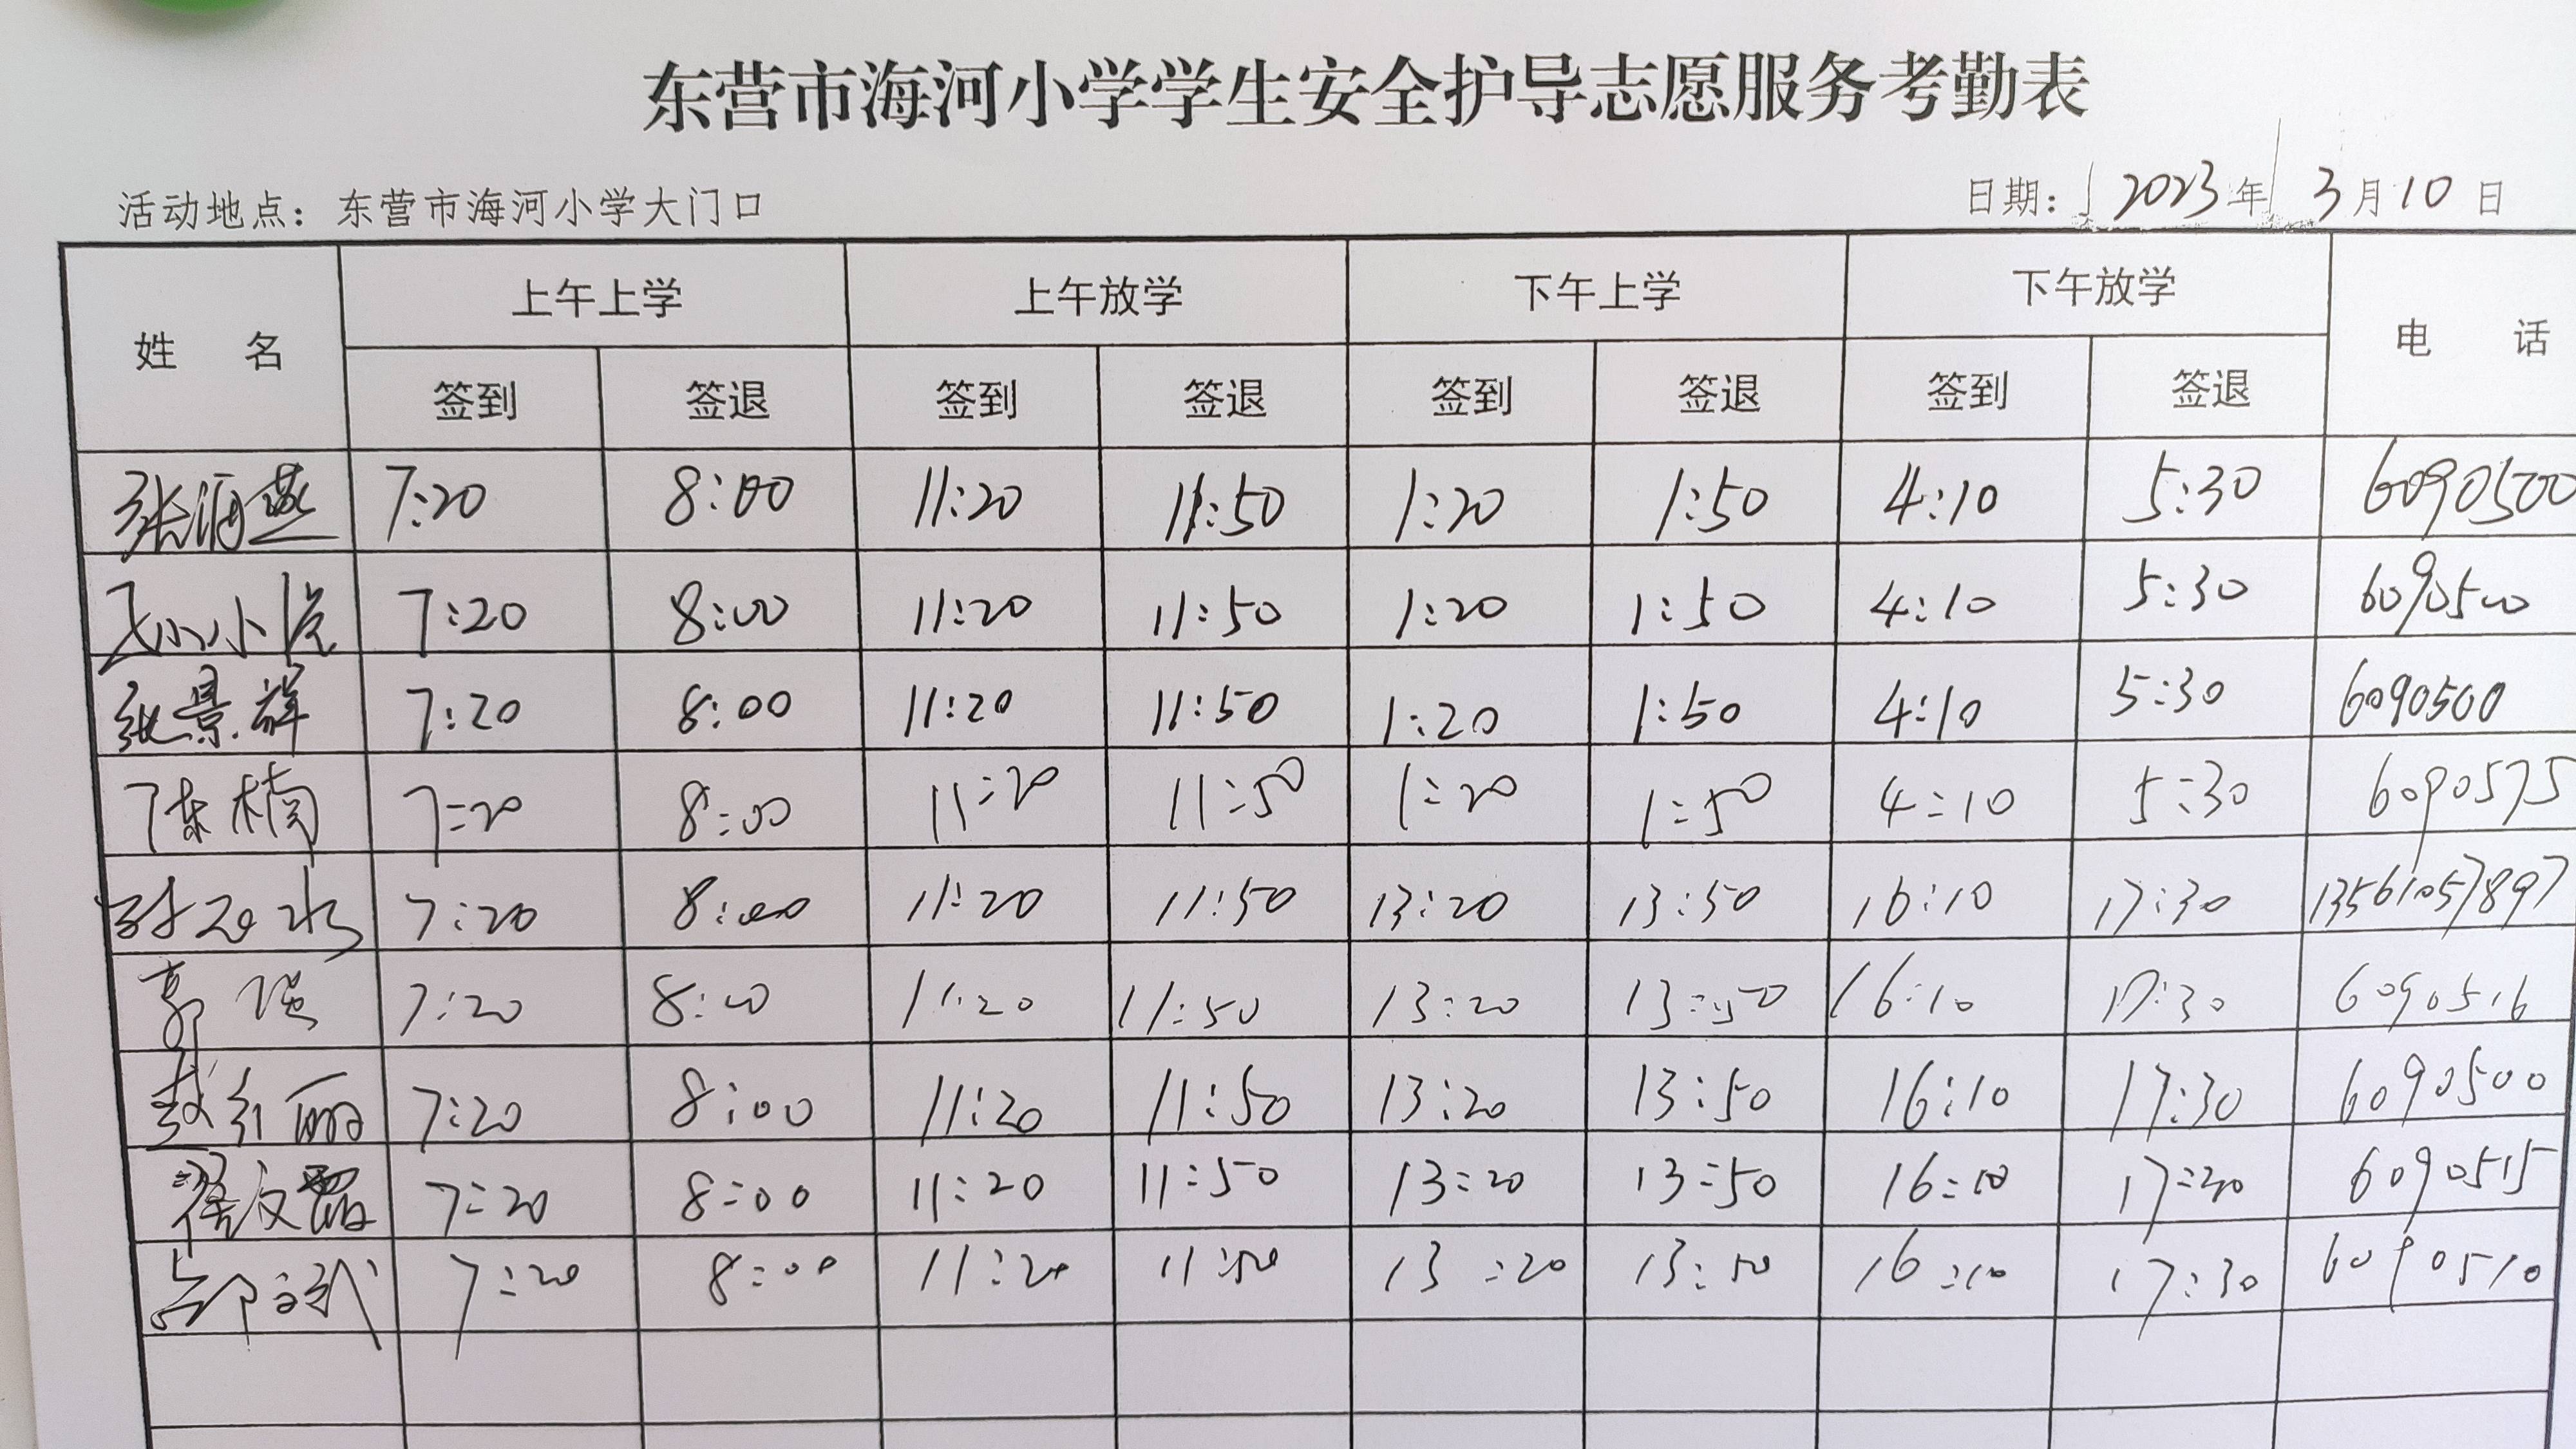 东营市海河小学学生安全护导志愿服务考勤表
活动地点：东营市海河小学大门口 日期： 2023年 3月10日
姓 名 上午上学 上午放学 下午上学 下午放学 电 话
签到 签退 签到 签退 签到 签退 签到 签退
7:20 8:00 11:20 11:50 1:20 1:50 4:10 5:30 6090500
7:20 8:00 11:20 11:50 1:20 1:50 4:10 5:30 6090500
张景祥 7:20 8:00 11:20 11:50 1:20 1:50 4:10 5:30 6090500
陈楠 7:20 8:00 11:20 11:50 1:20 1:50 4:10 5:30 6090575
7:20 8:00 11:20 11:50 13:20 13:50 16:10 17:30 13561057897
郭强 7:20 8:00 11:20 11:50 13:20 13:50 16:10 17:30 6090516
赵红丽 7:20 8:00 11:20 11:50 13:20 13:50 16:10 17:30 6090500
翟文霞 7:20 8:00 11:20 11:50 13:20 13:50 16:10 17:30 6090515
7:20 8:00 11:20 11:50 13:20 13:50 16:10 17:30 6090510